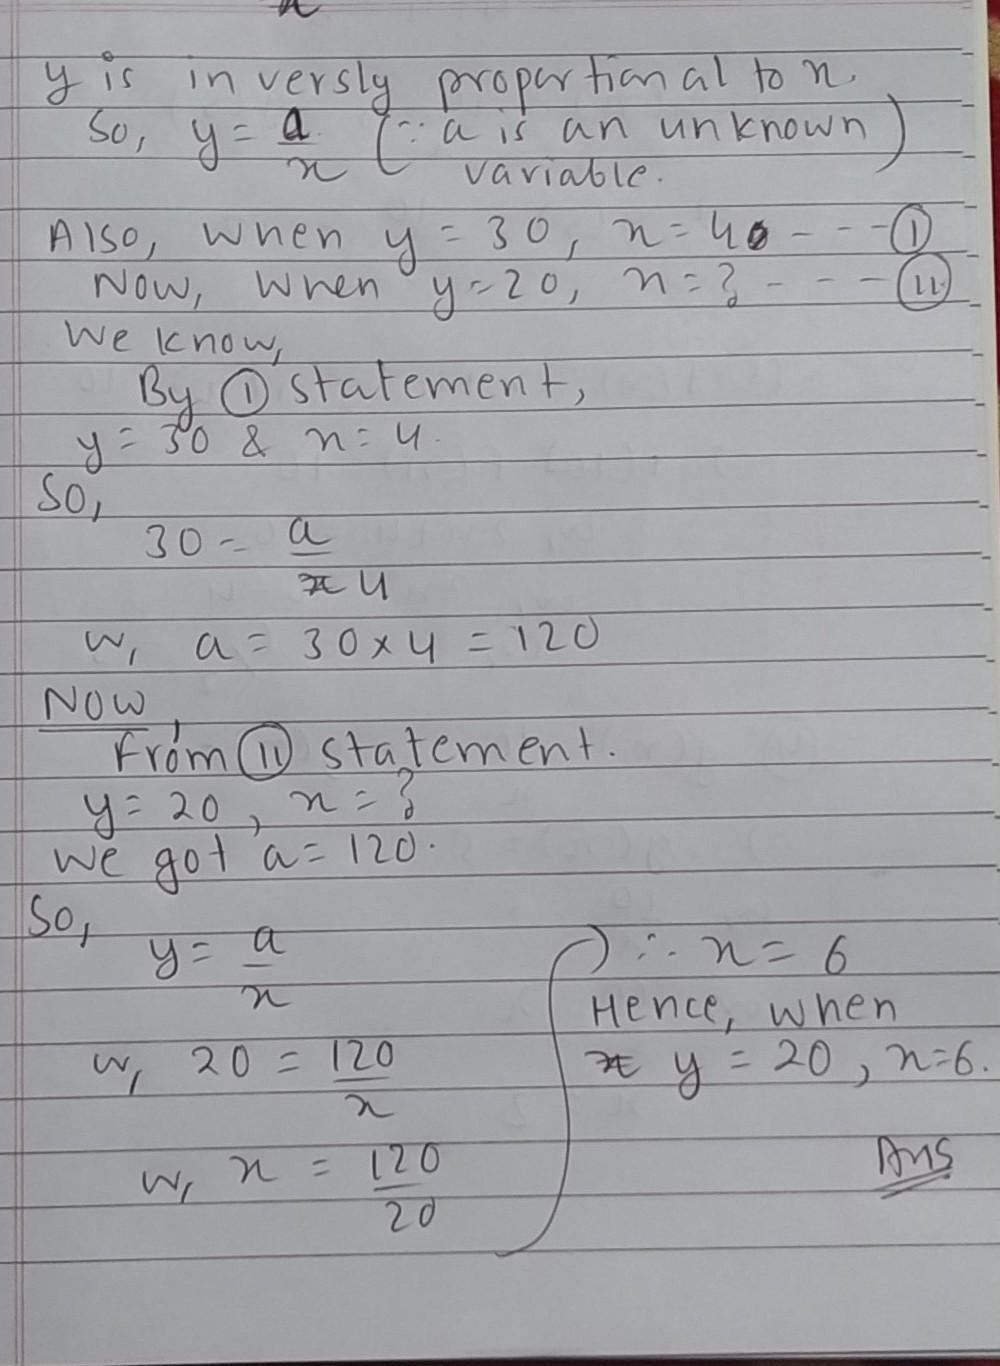 x
y is inversly proportional to x.
So, y = a/x (∵ a is an unknown
variable.)
Also, when y = 30, x = 4 - - - (I)
Now, when y = 20, x = ? - - - (II)
We know,
By (I) statement,
y = 30 & x = 4.
So,
30 = a/4
or, a = 30 × 4 = 120
Now,
From (II) statement.
y = 20, x = ?
We got a = 120.
So,
y = a/x
or, 20 = 120/x
or, x = 120/20
∴ x = 6
Hence, when
y = 20, x = 6.
Ans